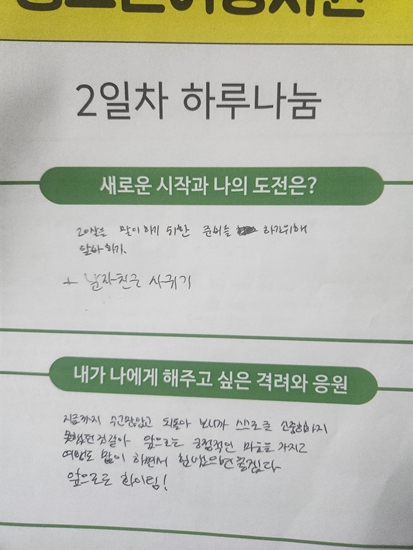 2일차 하루나눔
새로운 시작과 나의 도전은?
20살을 맞이하기 위한 준비를 하기위해
알바 하기.
+ 남자친구 사귀기
내가 나에게 해주고 싶은 격려와 응원
지금까지 수고많았고 되돌아 보니까 스스로를 소중하지
못했던것같아 앞으로는 긍정적인 마음을 가지고
여행도 많이 하면서 힘냈으면 좋겠다
앞으로도 화이팅!